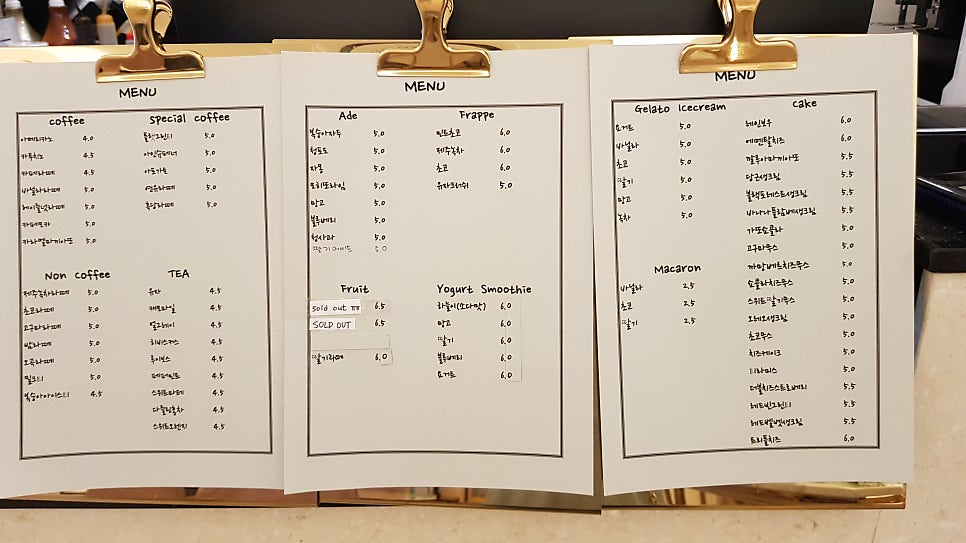 MENU
coffee
아메리카노 4.0
카푸치노 4.5
카페라떼 4.5
바닐라라떼 5.0
헤이즐넛라떼 5.0
카페모카 5.0
카라멜마끼아또 5.0
Special coffee
돌체그린티 5.0
아인슈페너 5.0
아포가토 5.0
연유라떼 5.0
흑당라떼 5.0
Non coffee
제주녹차라떼 5.0
초코라떼 5.0
고구마라떼 5.0
밤라떼 5.0
오곡라떼 5.0
밀크티 5.0
복숭아아이스티 4.5
TEA
유자 4.5
캐모마일 4.5
얼그레이 4.5
히비스커스 4.5
루이보스 4.5
페퍼민트 4.5
4.5
다즐링홍차 4.5
스위트오렌지 4.5
MENU
Ade
복숭아자두 5.0
청포도 5.0
자몽 5.0
모히또라임 5.0
망고 5.0
블루베리 5.0
청사과 5.0
딸기에이드 5.0
Frappe
민트초코 6.0
제주녹차 6.0
초코 6.0
유자크러쉬 5.0
Fruit
sold out ㅠㅠ 6.5
SOLD OUT 6.5
딸기라떼 6.0
Yogurt Smoothie
하늘이(소다맛) 6.0
망고 6.0
딸기 6.0
블루베리 6.0
요거트 6.0
MENU
Gelato Icecream
요거트 5.0
바닐라 5.0
초코 5.0
딸기 5.0
망고 5.0
녹차 5.0
Macaron
바닐라 2.5
초코 2.5
딸기 2.5
Cake
레인보우 6.0
에멘탈치즈 6.0
깔루아마끼아또 5.5
당근생크림 5.5
블랙포레스트생크림 5.5
바나나푸딩생크림 5.5
가또쇼콜라 5.0
고구마무스 5.0
까망베르치즈무스 5.0
쇼콜라치즈무스 5.0
스위트딸기무스 5.0
오레오생크림 5.0
초코무스 5.0
치즈케이크 5.0
티라미스 5.0
더블치즈스트로베리 5.5
레드빈그린티 5.5
레드벨벳생크림 5.5
트리플치즈 6.0